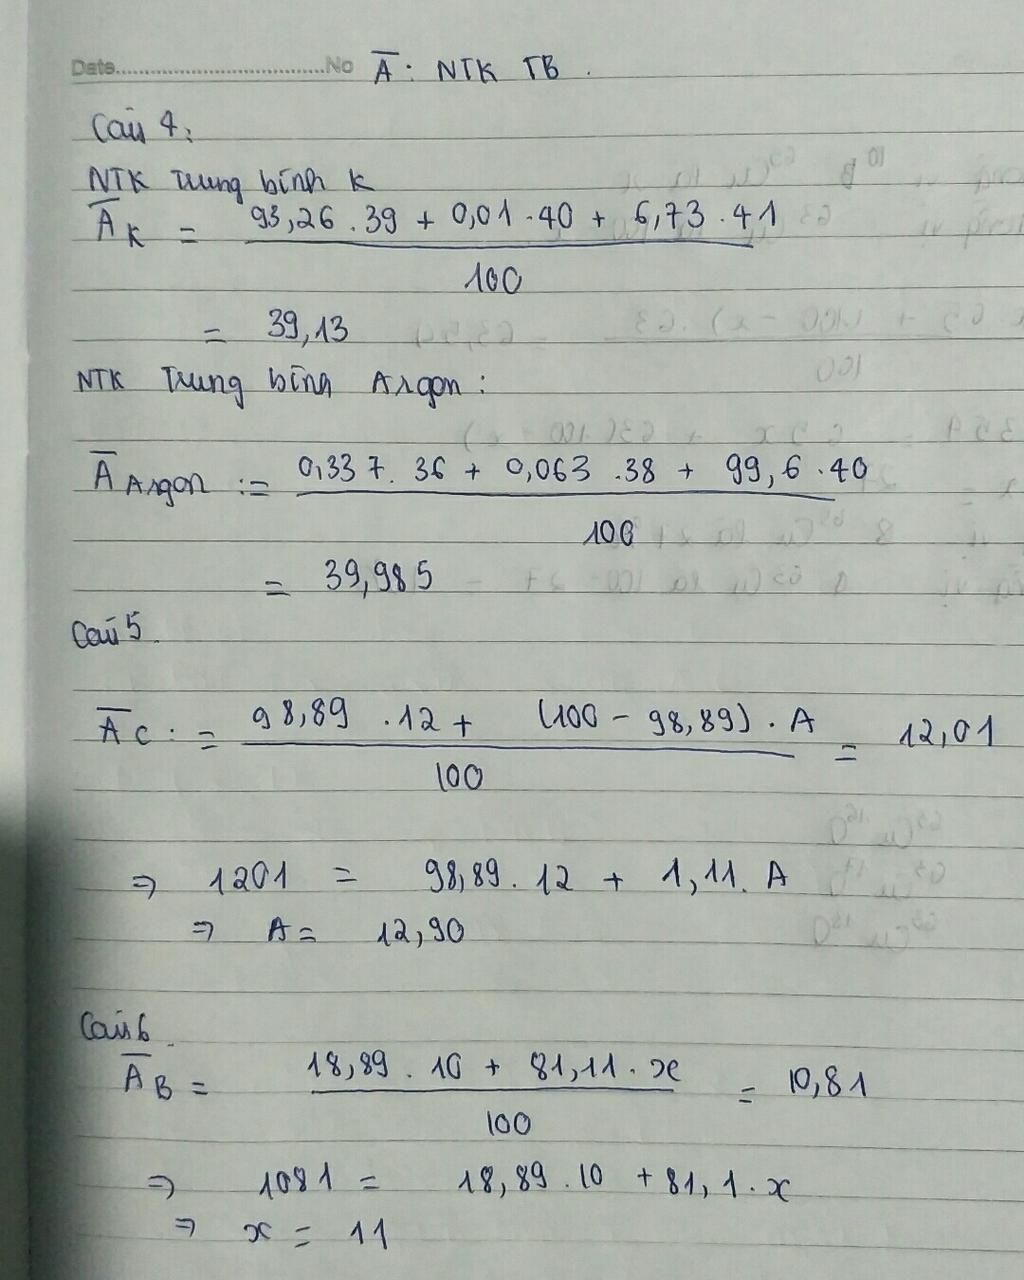 Date..................................No Ā: NTK TB.
Câu 4:
NTK Trung bình K
Ā K = 93,26 . 39 + 0,01 . 40 + 6,73 . 41
100
= 39,13
NTK Trung bình Argon:
Ā Argon := 0,337. 36 + 0,063 .38 + 99,6 .40
100
= 39,985
Câu 5.
Ā C : = 98,89 .12 + (100 - 98,89) . A = 12,01
100
⇒ 1201 = 98,89. 12 + 1,11. A
⇒ A = 12,90
Câu 6.
Ā B = 18,89 . 10 + 81,11 . x = 10,81
100
⇒ 1081 = 18,89 .10 + 81,1 . x
⇒ x = 11